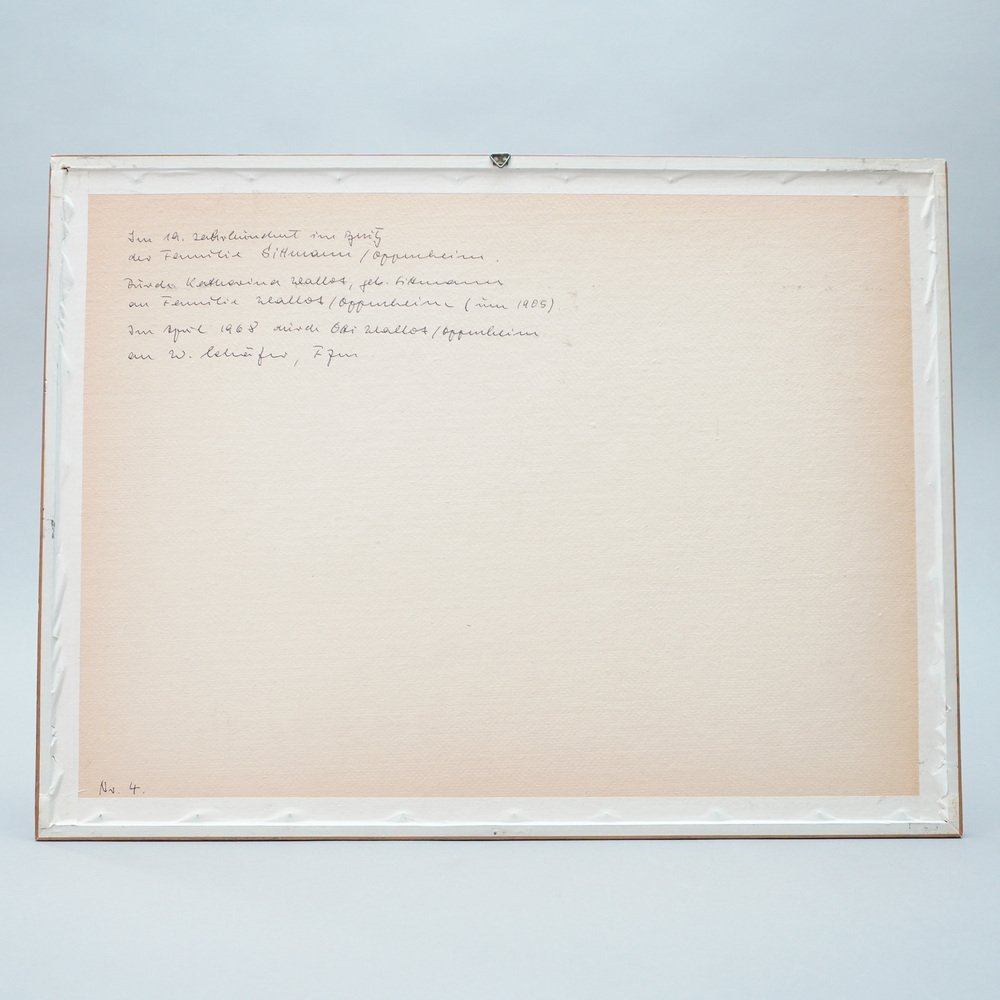 Im 19. Jahrhundert im Besitz
der Familie Sittmann / Oppenheim.
Durch Katharina Wallot, geb. Sittmann
an Familie Wallot / Oppenheim (um 1905).
Im April 1968 durch Wallot / Oppenheim
an W. Schäfer, Ffm
Nr. 4.